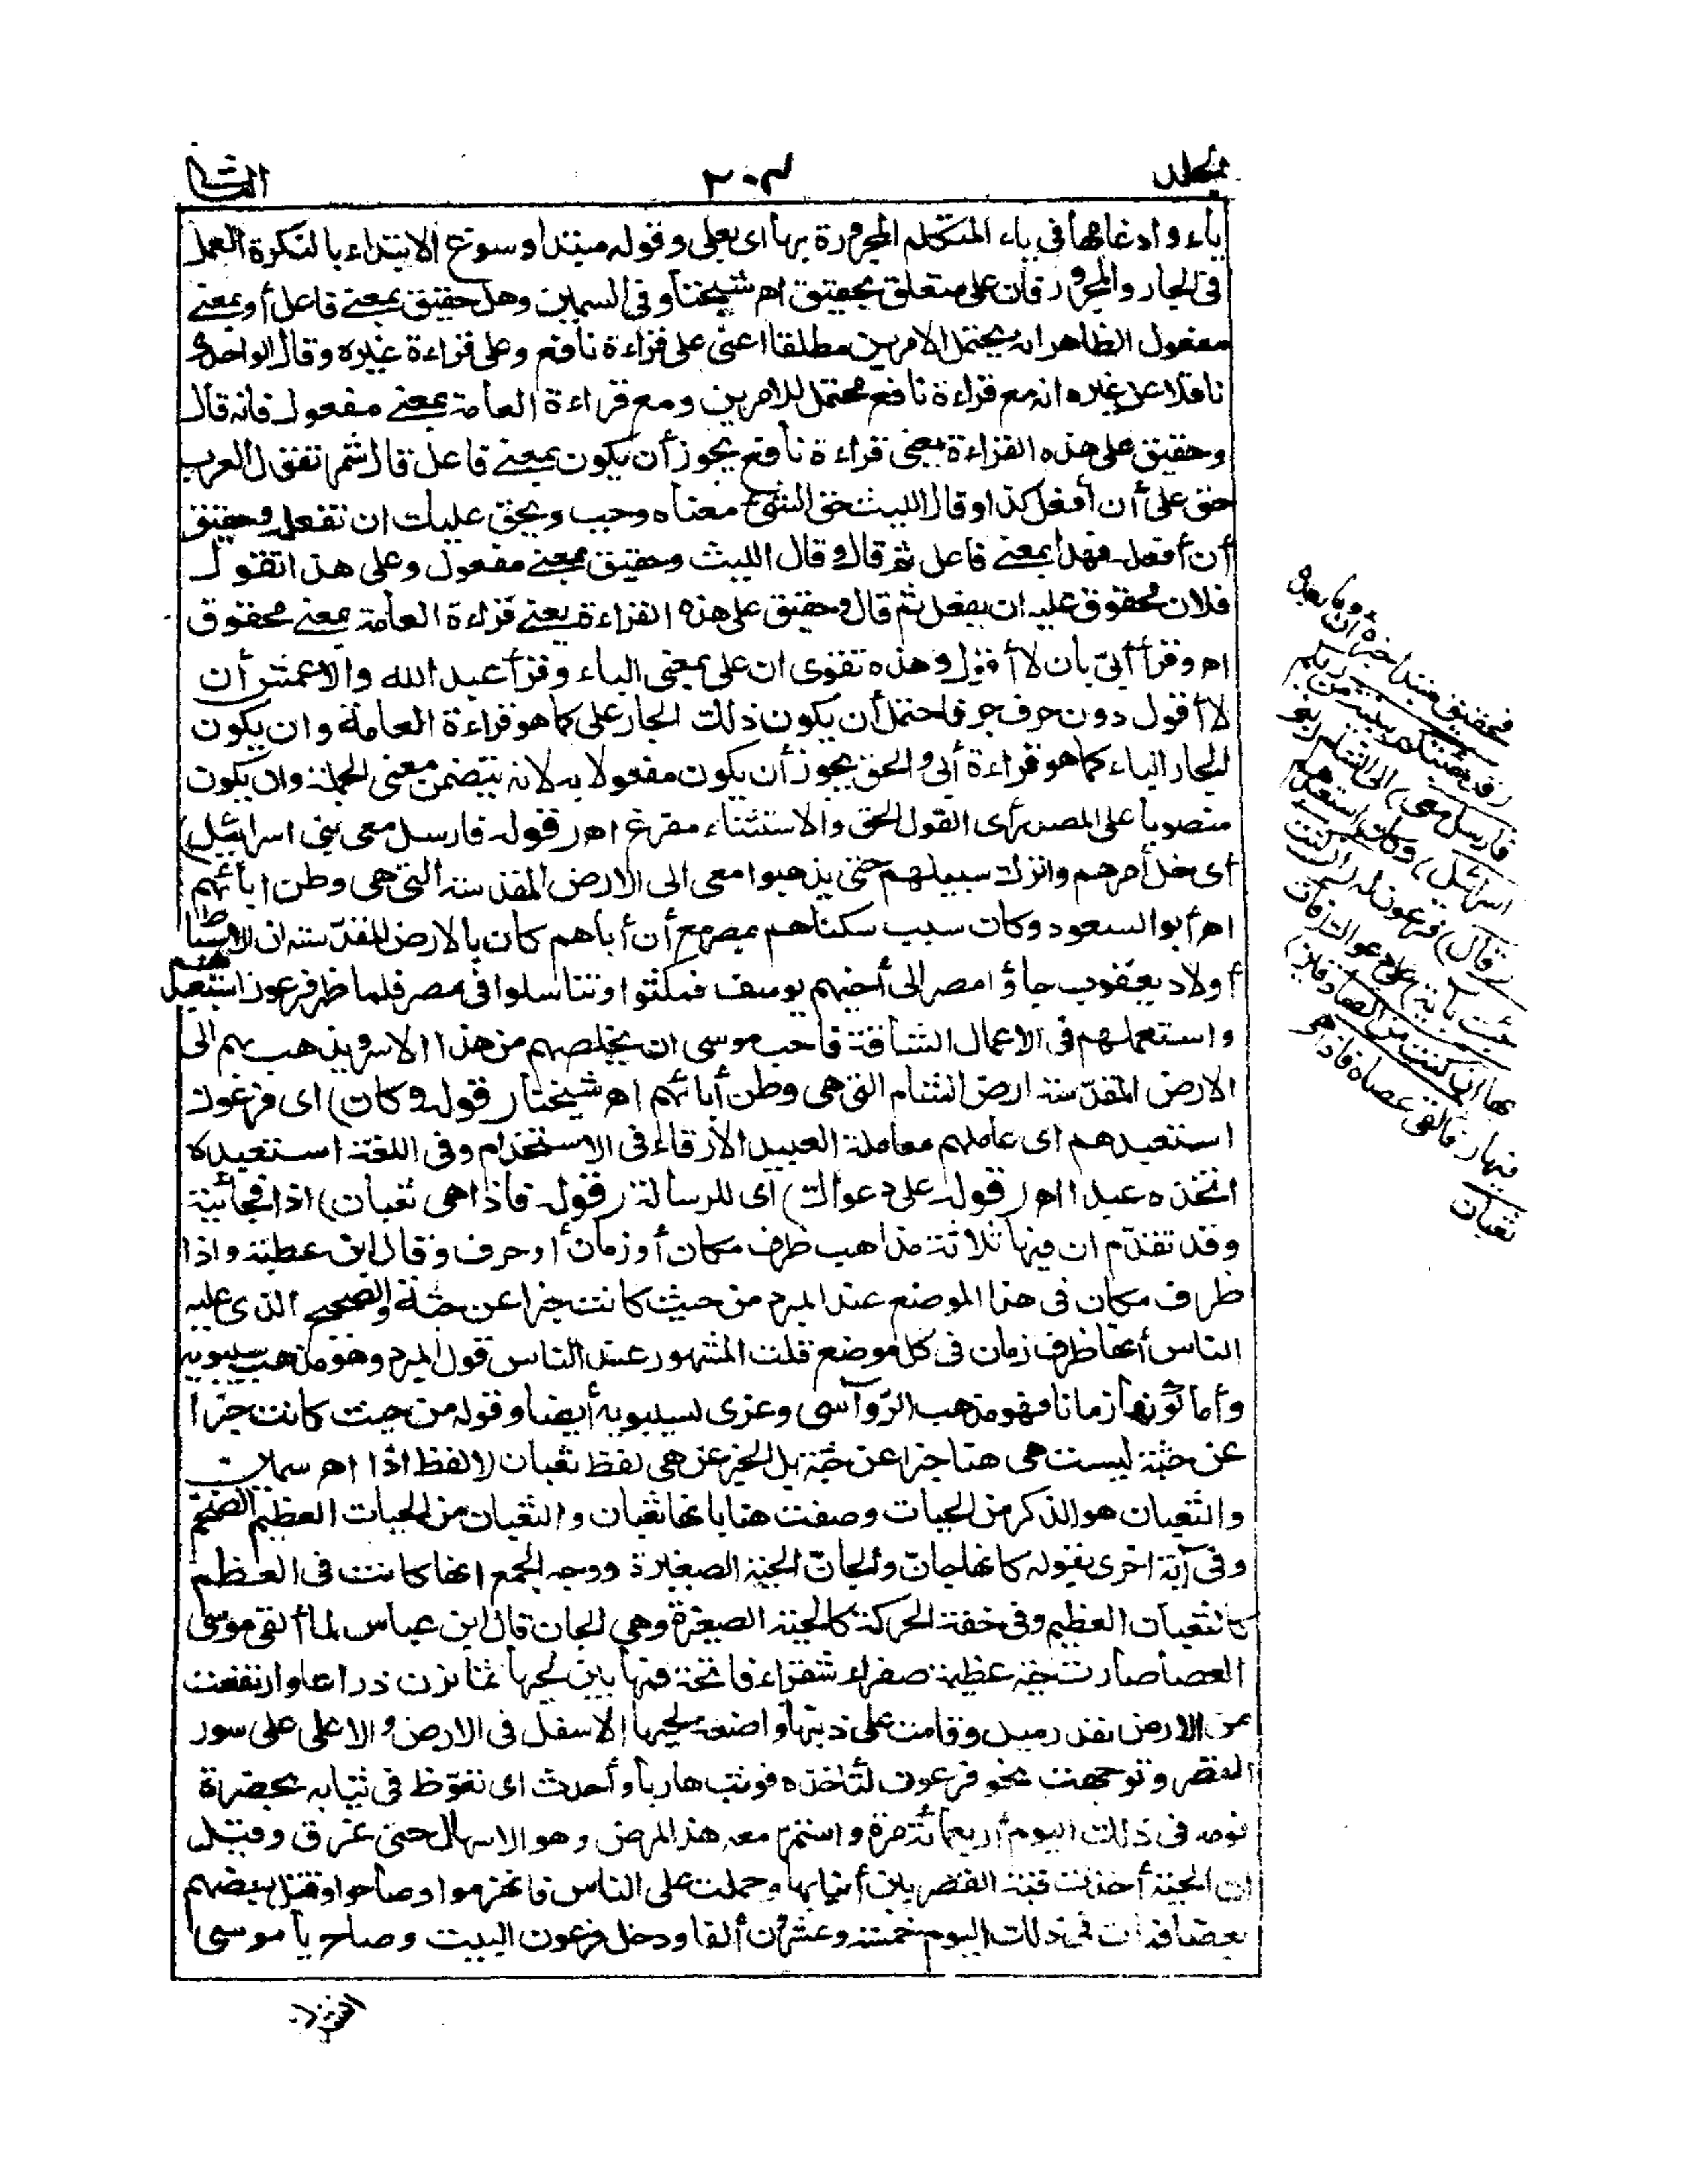 المجلد
٢٠٣
الثا
ياء وادغامها فى ياء المتكلم المجرورة بها اى بعلى وقوله مبتدأ وسوغ الابتداء بالنكرة العمل
فى الجار والمجرور فان على متعلق بحقيق اهـ شيخنا وفى السمين وهل حقيق بمعنى فاعل أو بمعنى
مفعول الظاهر انه يحتمل الامرين مطلقا اعنى على قراءة نافع وعلى قراءة غيره وقال الواحدى
ناقلا عن غيره انه مع قراءة نافع محتمل للامرين ومع قراءة العامة بمعنى مفعول فانه قال
وحقيق على هذه القراءة يعنى قراءة نافع يجوز أن يكون بمعنى فاعل قال شمر تقول العرب
حق على أن أفعل كذا وقال الليث حق الشئ معناه وجب ويحق عليك ان تفعل وحقيق
أن أفعل فهذا بمعنى فاعل ثم قال وقال الليث وحقيق بمعنى مفعول وعلى هذا تقول
فلان محقوق عليه ان يفعل ثم قال وحقيق على هذه القراءة يعنى قراءة العامة بمعنى محقوق
اهـ وقرأ أبىّ بان لا أقول وهذه تقوى ان على بمعنى الباء وقرأ عبد الله والاعمش أن
لا أقول دون حرف جر فاحتمل أن يكون ذلك الجار على كما هو قراءة العامة وان يكون
الجار الباء كما هو قراءة أبى والحق يجوز أن يكون مفعولا به لانه يتضمن معنى الجملة وان يكون
منصوبا على المصدر أى القول الحق والاستثناء مفرغ اهـ (قوله فارسل معى بنى اسرائيل)
أى خل أمرهم واترك سبيلهم حتى يذهبوا معى الى الارض المقدسة التى هى وطن ابائهم
اهـ أبو السعود وكان سبب سكناهم بمصر مع أن أباهم كان بالارض المقدسة ان الاسباط
أولاد يعقوب جاؤا مصر الى أخيهم يوسف فمكثوا وتناسلوا فى مصر فلما ظهر فرعون استعبدهم
واستعملهم فى الاعمال الشاقة فاحب موسى ان يخلصهم من هذا الاسر ويذهب بهم الى
الارض المقدسة ارض الشام التى هى وطن أبائهم اهـ شيخنا (قوله وكان) اى فرعون
استعبدهم اى عاملهم معاملة العبيد الأرقاء فى الاستخدام وفى اللغة استعبده
اتخذه عبدا اهـ (قوله على دعواك) أى للرسالة (قوله فاذا هى ثعبان) اذا فجائية
وقد تقدّم ان فيها ثلاثة مذاهب ظرف مكان أو زمان أو حرف وقال ابن عطية واذا
ظرف مكان فى هذا الموضع عند المبرد من حيث كانت خبرا عن جثة والصحيح الذى عليه
الناس أنها ظرف زمان فى كل موضع قلت المشهور عند الناس قول المبرد وهو مذهب سيبويه
وأما كونها زمانا فهو مذهب الرّوآسى وعزى لسيبويه أيضا وقوله من حيث كانت خبرا
عن جثة ليست هى هنا خبرا عن جثة بل الخبر عن هى لفظ ثعبان لا لفظ اذا اهـ سمين
والثعبان هو الذكر من الحيات وصفت هنا بانها ثعبان والثعبان من الحيات العظيم الضخم
وفى آية اخرى بقوله كانها جان والجان الحية الصغيرة ووجه الجمع انها كانت فى العظم
كالثعبان العظيم وفى خفة الحركة كالحية الصغيرة وهى الجان قال ابن عباس لما ألقى موسى
العصا صارت حية عظيمة صفراء شقراء فاتحة فمها بين لحيها ثمانون ذراعا وارتفعت
من الارض بقدر ميل وقامت على ذنبها واضعة لحيها الاسفل فى الارض والاعلى على سور
القصر وتوجهت نحو فرعون لتأخذه فوثب هاربا وأحدث اى تغوّط فى ثيابه بحضرة
قومه فى ذلك اليوم أربعمائة مرة واستمرّ معه هذا المرض وهو الاسهال حتى غرق وقيل
ان الحية أخذت قبة القصر بين أنيابها وحملت على الناس فانهزموا وصاحوا وقتل بعضهم
بعضا فمات فى ذلك اليوم خمسة وعشرون ألفا ودخل فرعون البيت وصاح يا موسى
فحقيق مبتدأ خبره أن وما بعده
(قد جئتكم ببينة من ربكم
فارسل معى) الى الشام (بنى
اسرائيل) وكان استعبدهم
(قال) فرعون له (ان كنت
جئت بآية) على دعواك (فأت
بها ان كنت من الصادقين)
فيها (فألقى عصاه فاذا هى
ثعبان